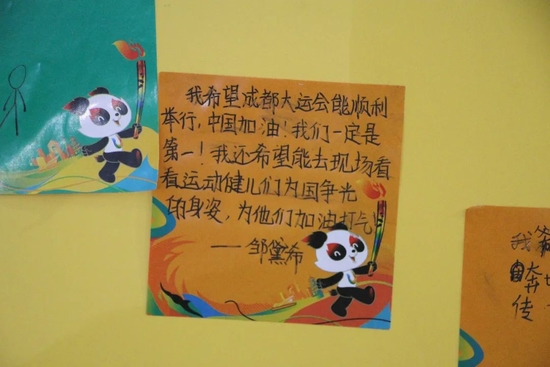 我希望成都大运会能顺利
举行,中国加油!我们一定是
第一!我还希望能去现场看
看运动健儿们为国争光
的身姿,为他们加油打气!
——邹黛希
我
奔
传